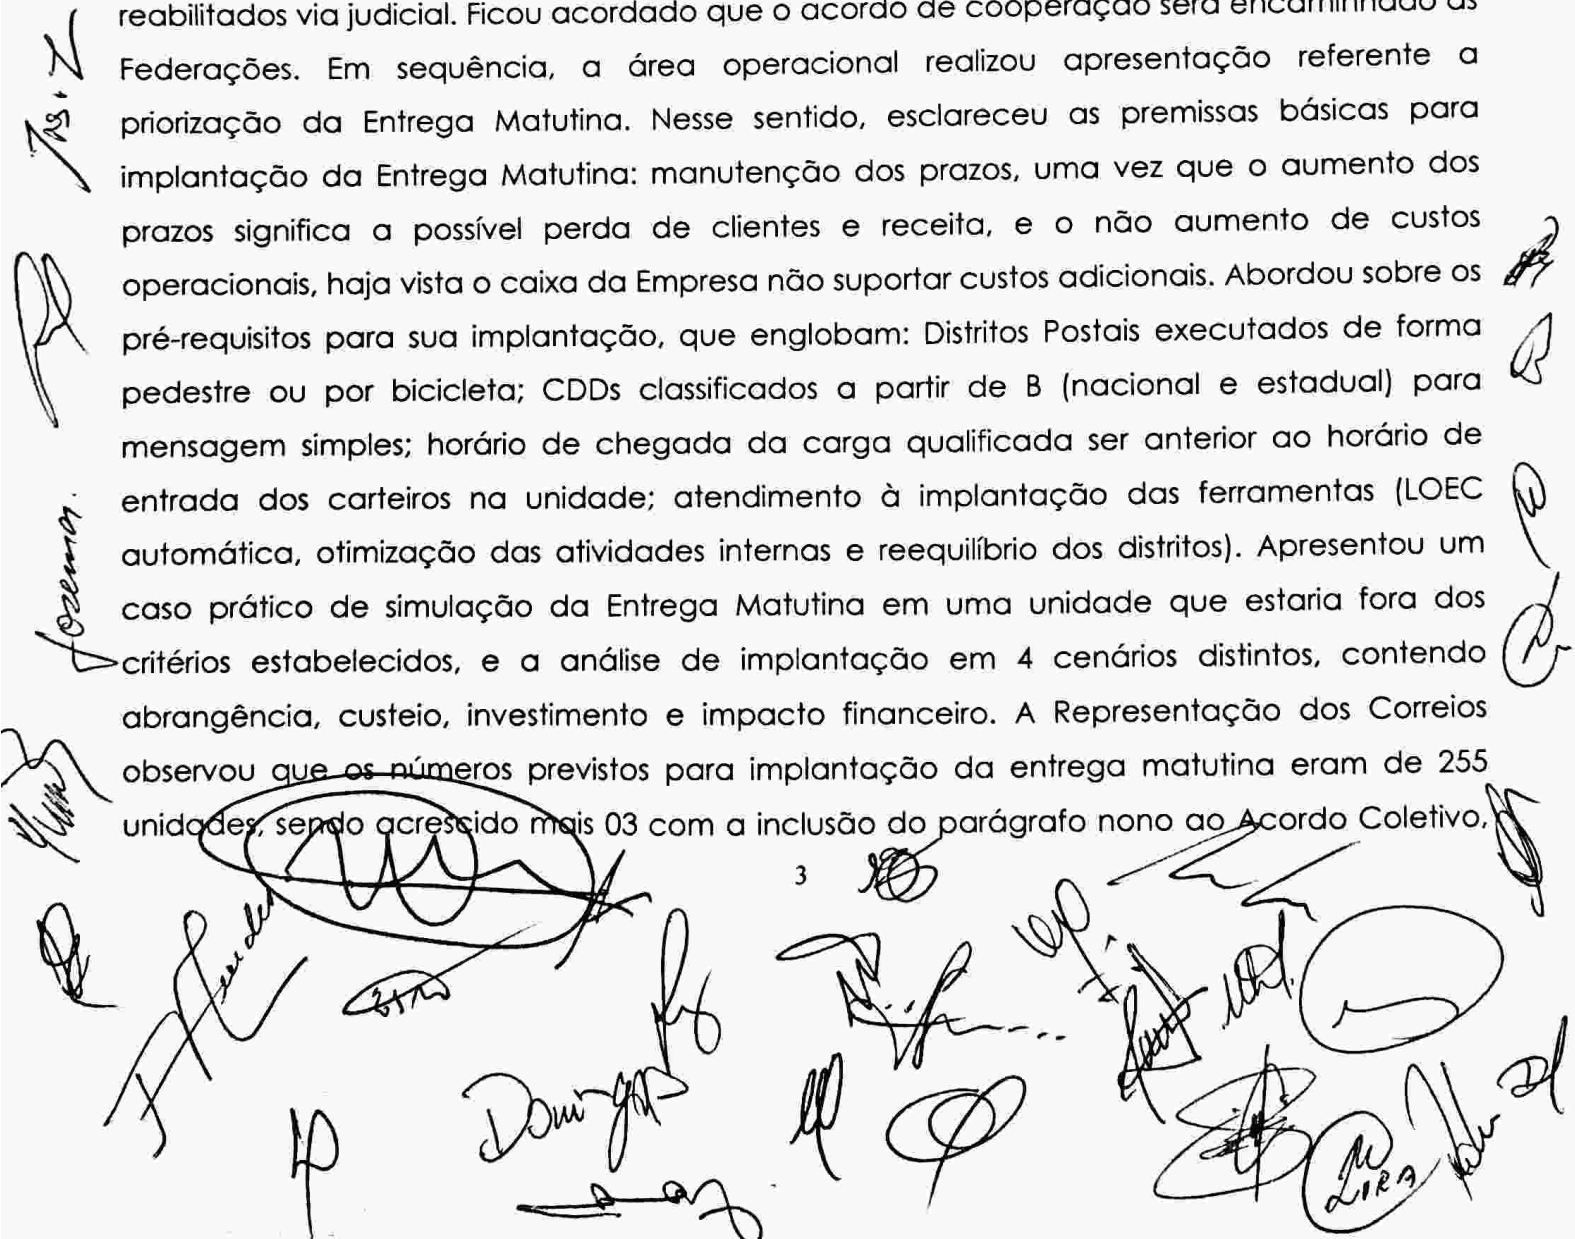 reabilitados via judicial. Ficou acordado que o acordo de cooperação será encaminhado às
Federações. Em sequência, a área operacional realizou apresentação referente a
priorização da Entrega Matutina. Nesse sentido, esclareceu as premissas básicas para
implantação da Entrega Matutina: manutenção dos prazos, uma vez que o aumento dos
prazos significa a possível perda de clientes e receita, e o não aumento de custos
operacionais, haja vista o caixa da Empresa não suportar custos adicionais. Abordou sobre os
pré-requisitos para sua implantação, que englobam: Distritos Postais executados de forma
pedestre ou por bicicleta; CDDs classificados a partir de B (nacional e estadual) para
mensagem simples; horário de chegada da carga qualificada ser anterior ao horário de
entrada dos carteiros na unidade; atendimento à implantação das ferramentas (LOEC
automática, otimização das atividades internas e reequilíbrio dos distritos). Apresentou um
caso prático de simulação da Entrega Matutina em uma unidade que estaria fora dos
critérios estabelecidos, e a análise de implantação em 4 cenários distintos, contendo
abrangência, custeio, investimento e impacto financeiro. A Representação dos Correios
observou que os números previstos para implantação da entrega matutina eram de 255
unidades, sendo acrescido mais 03 com a inclusão do parágrafo nono ao Acordo Coletivo,
3
Domingos
LIRA